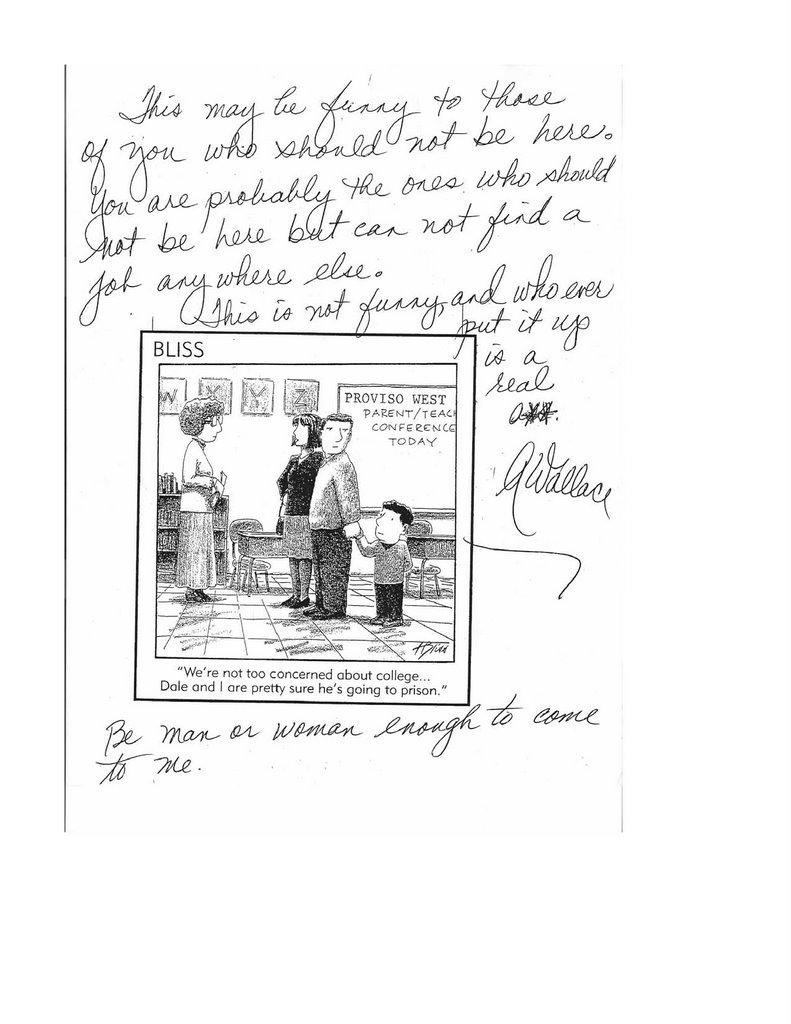 This may be funny to those
of you who should not be here.
You are probably the ones who should
not be here but can not find a
job anywhere else.
This is not funny, and who ever
put it up
is a
real
a**.
AWallace
BLISS
W X Y Z
PROVISO WEST
PARENT/TEACH
CONFERENCE
TODAY
"We're not too concerned about college...
Dale and I are pretty sure he's going to prison."
Be man or woman enough to come
to me.